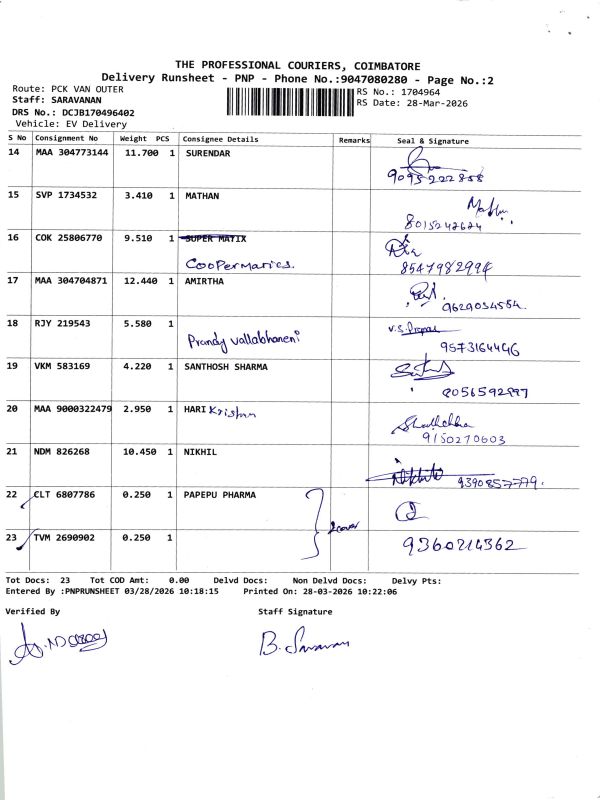 THE PROFESSIONAL COURIERS, COIMBATORE
Delivery Runsheet - PNP - Phone No.:9047080280 - Page No.:2
Route: PCK VAN OUTER
RS No.: 1704964
Staff: SARAVANAN
RS Date: 28-Mar-2026
DRS No.: DCJB170496402
Vehicle: EV Delivery
S No Consignment No Weight PCS Consignee Details Remarks Seal & Signature
14 MAA 304773144 11.700 1 SURENDAR
9095222858
15 SVP 1734532 3.410 1 MATHAN
8015242624
16 COK 25806770 9.510 1 SUPER MATIX
CooPermatics.
8547982994
17 MAA 304704871 12.440 1 AMIRTHA
9629034584.
18 RJY 219543 5.580 1
Prandy vallabhaneni
9573164446
19 VKM 583169 4.220 1 SANTHOSH SHARMA
8056592897
20 MAA 9000322479 2.950 1 HARI Krishnn
9150270603
21 NDM 826268 10.450 1 NIKHIL
Nikhil 9390857779.
22 CLT 6807786 0.250 1 PAPEPU PHARMA
2cover
23 TVM 2690902 0.250 1
9360214362
Tot Docs: 23 Tot COD Amt: 0.00 Delvd Docs: Non Delvd Docs: Delvy Pts:
Entered By :PNPRUNSHEET 03/28/2026 10:18:15 Printed On: 28-03-2026 10:22:06
Verified By Staff Signature
B. Saravanan